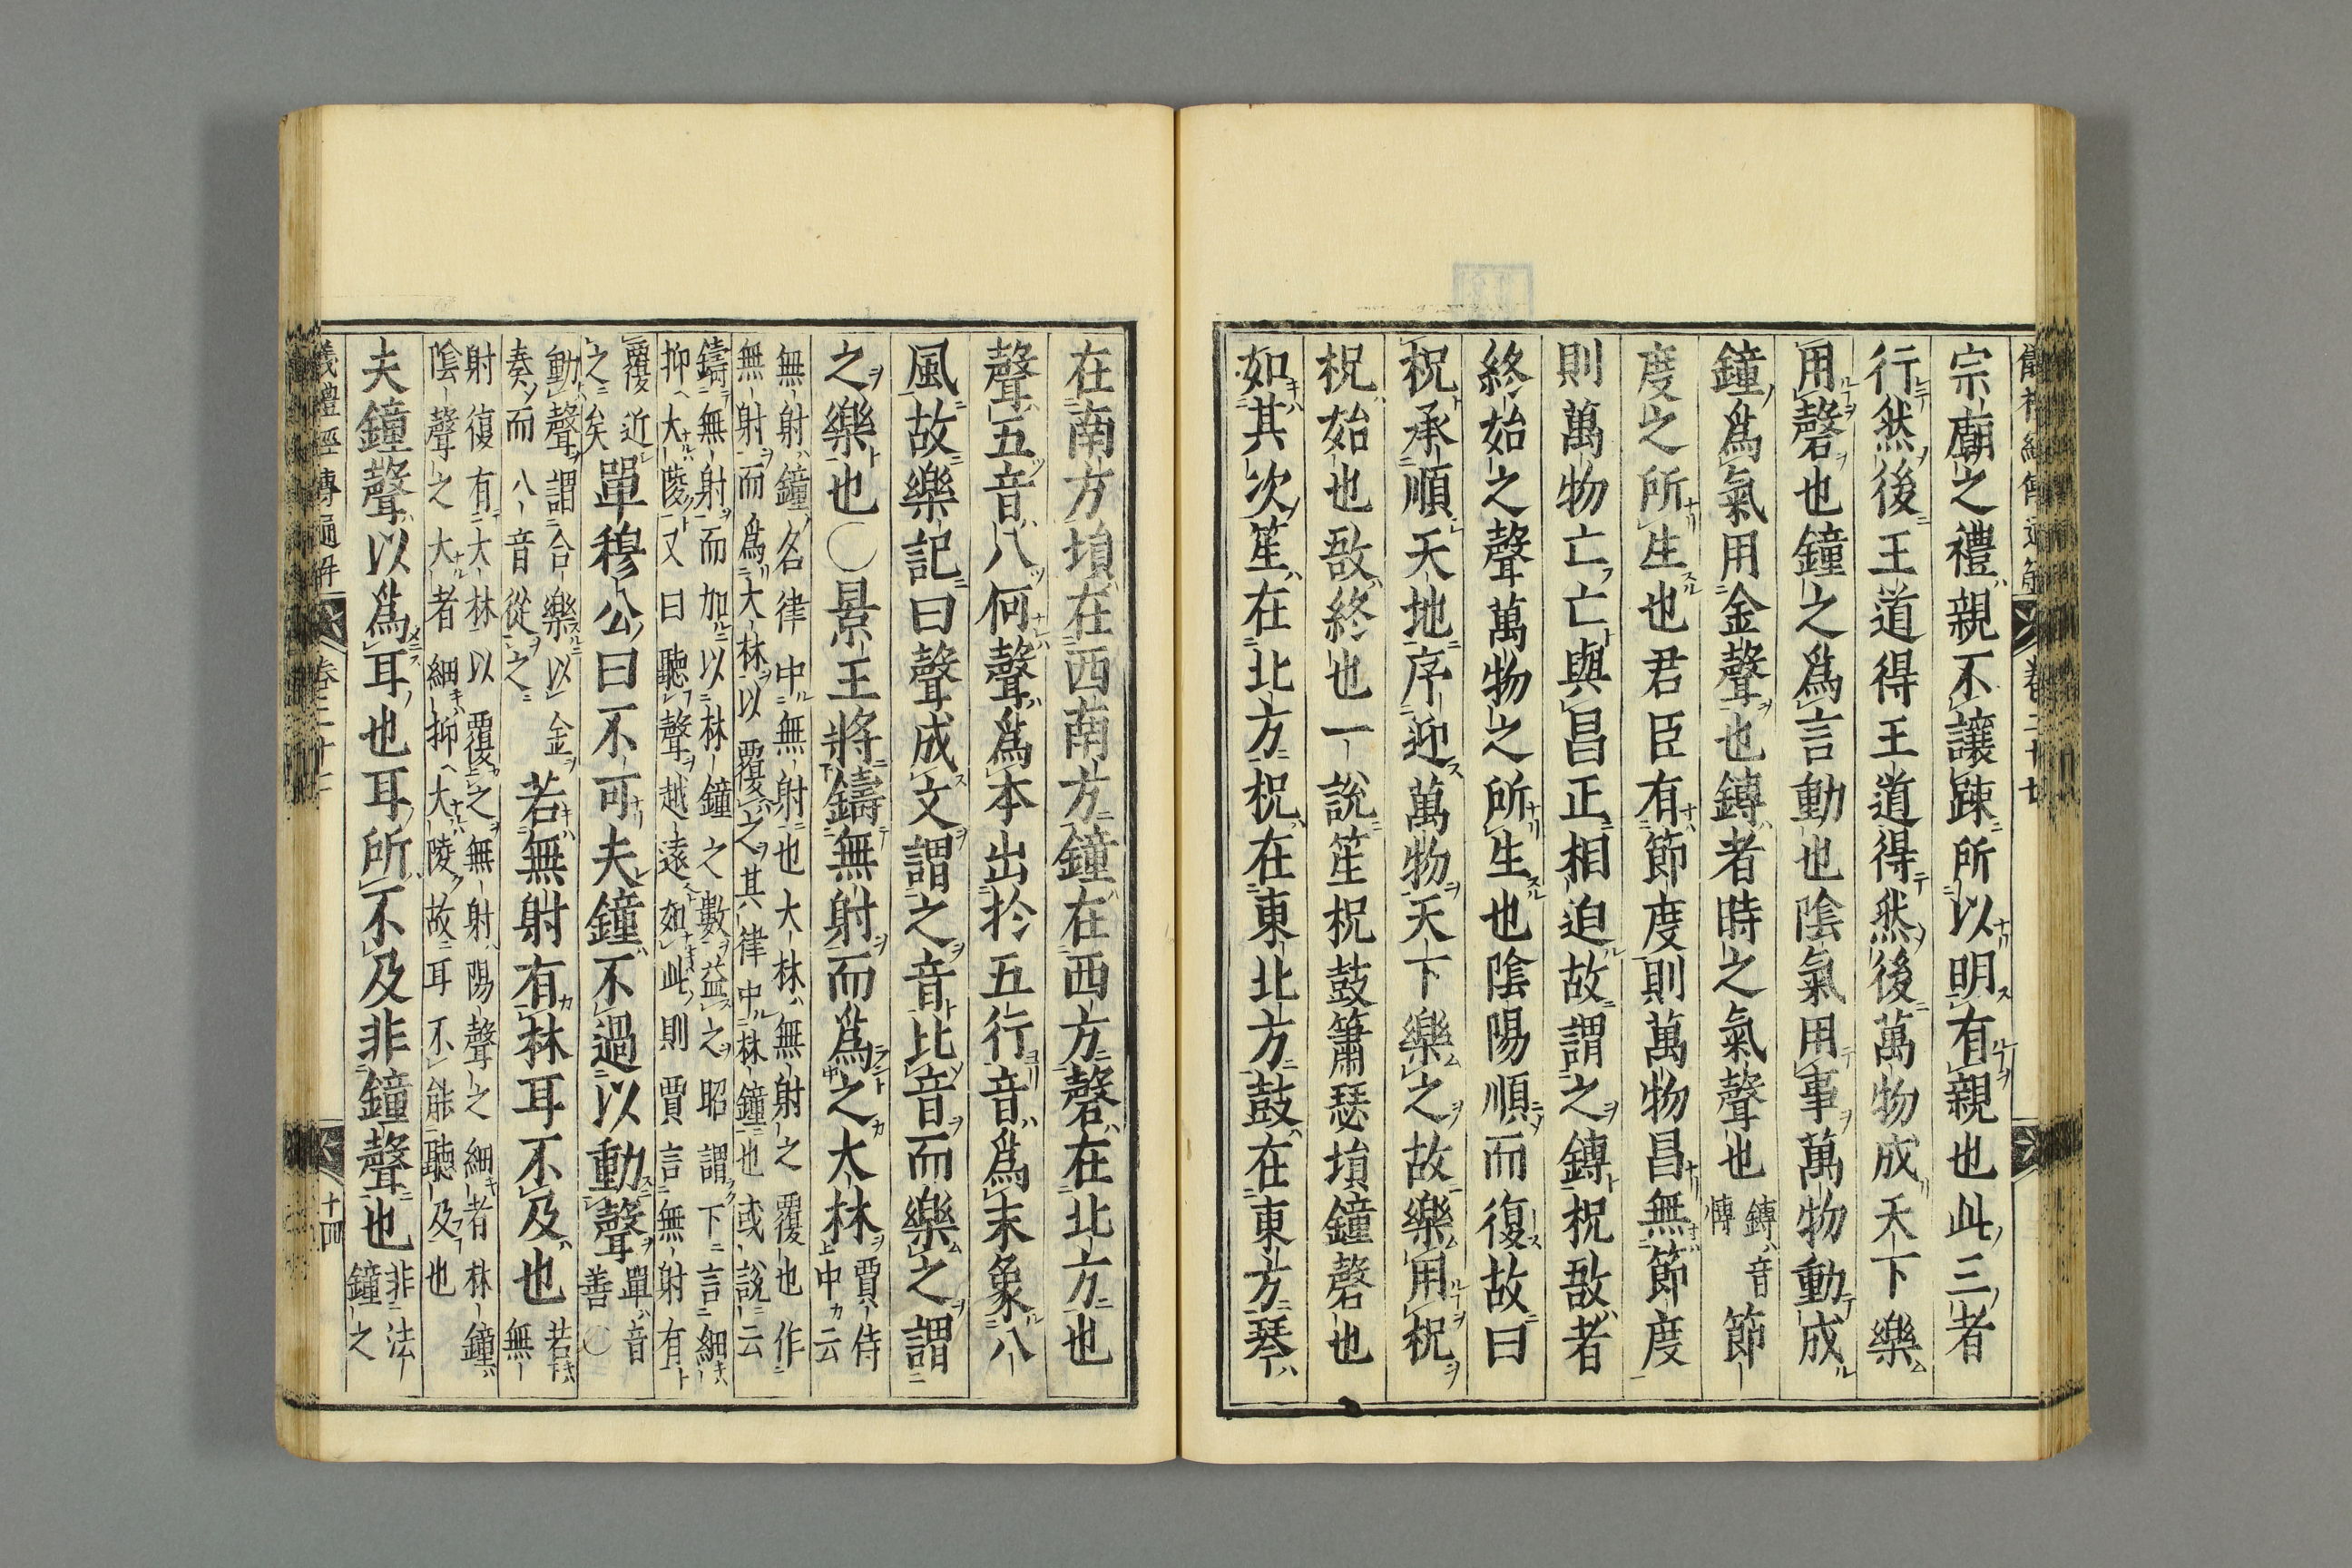 宗廟之禮親不讓踈所以明有親也此三者
行然後王道得王道得然後萬物成天下樂
用磬也鐘之爲言動也陰氣用事萬物動成
鐘爲氣用金聲也鎛者時之氣聲也鎛音慱節
度之所生也君臣有節度則萬物昌無節度
則萬物亡亡與昌正相迫故謂之鎛柷敔者
終始之聲萬物之所生也陰陽順而復故曰
柷承順天地序迎萬物天下樂之故樂用柷
柷始也敔終也一說笙柷鼓簫瑟塤鐘磬也
如其次笙在北方柷在東北方鼓在東方琴
在南方塤在西南方鐘在西方磬在北方也
聲五音八何聲爲本出於五行音爲末象八
風故樂記曰聲成文謂之音比音而樂之謂
之樂也○景王將鑄無射而爲之大林賈侍中云
無射鐘名律中無射也大林無射之覆也作
無射而爲大林以覆之其律中林鐘也或說云
鑄無射而加以林鐘之數益之昭謂下言細
抑大陵又曰聽聲越遠如此則賈言無射有
覆近之矣單穆公曰不可夫鐘不過以動聲單音善○
動聲謂合樂以金奏而八音從之若無射有林耳不及也若無
射復有大林以覆之無射陽聲之細者林鐘
陰聲之大者細抑大陵故耳不能聽及也
夫鐘聲以爲耳也耳所不及非鐘聲也非法鐘之
儀禮經傳通解
卷二十七
十四